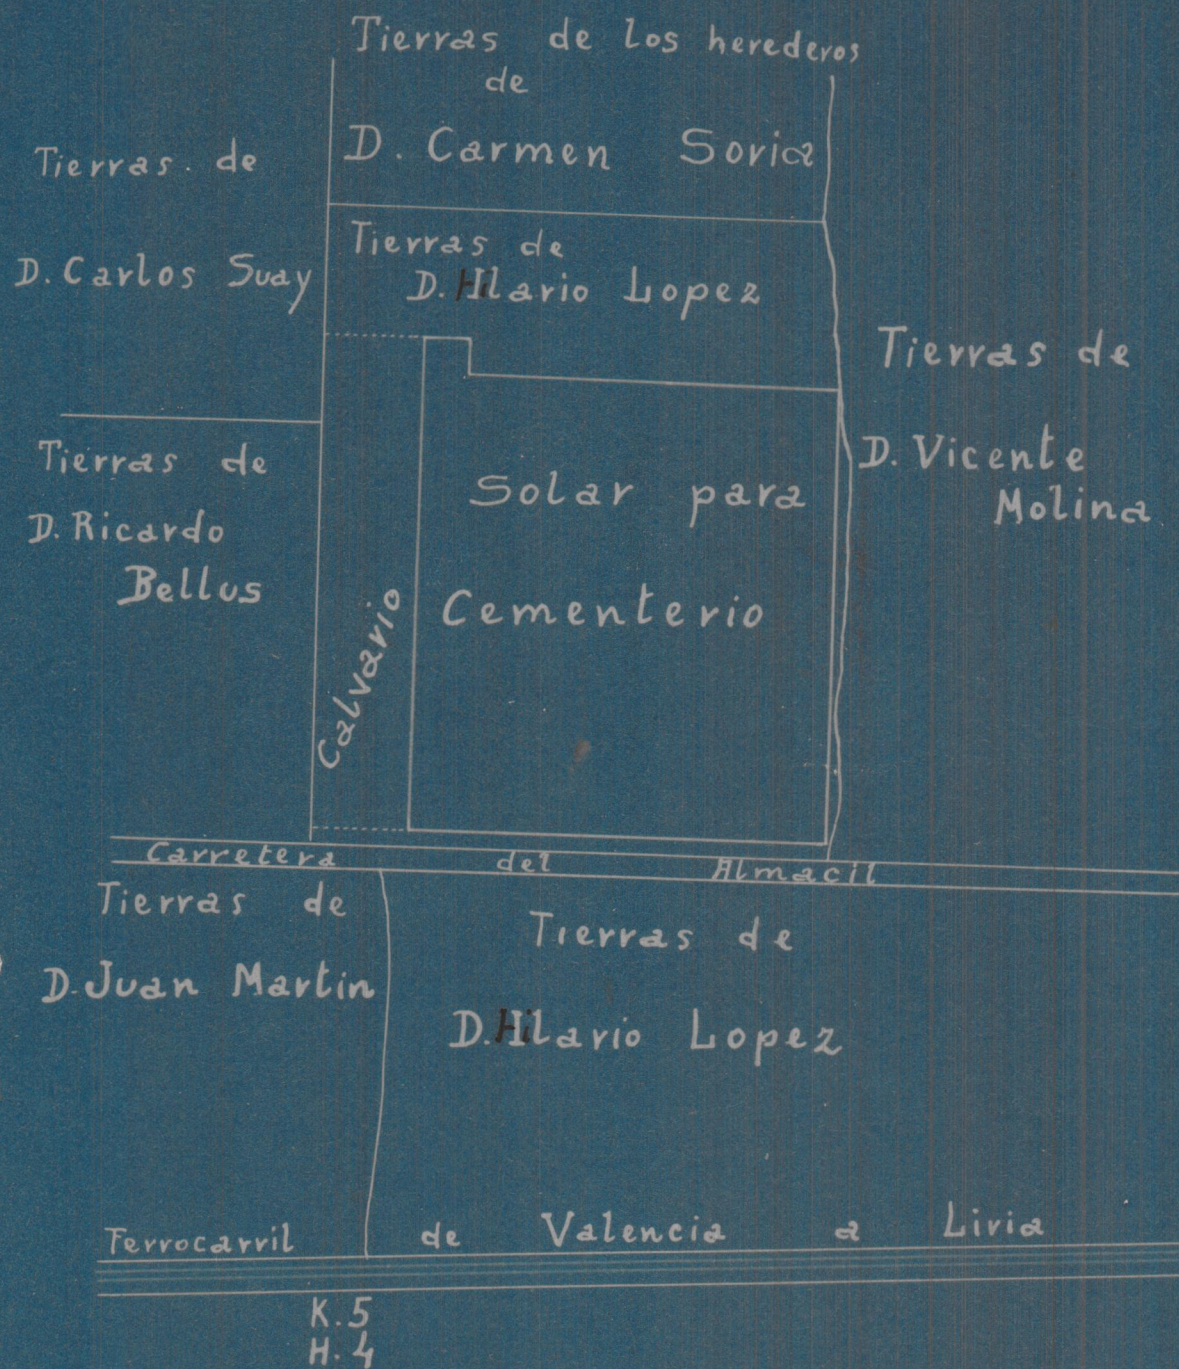 Tierras de los herederos
de
D. Carmen Soria
Tierras. de
D. Carlos Suay
Tierras de
D. Hilario Lopez
Tierras de
D. Vicente
Molina
Tierras de
D. Ricardo
Bellus
Solar para
Cementerio
Calvario
Carretera del Almacil
Tierras de
D. Juan Martin
Tierras de
D. Hilario Lopez
Ferrocarril de Valencia a Liria
K. 5
H. 4